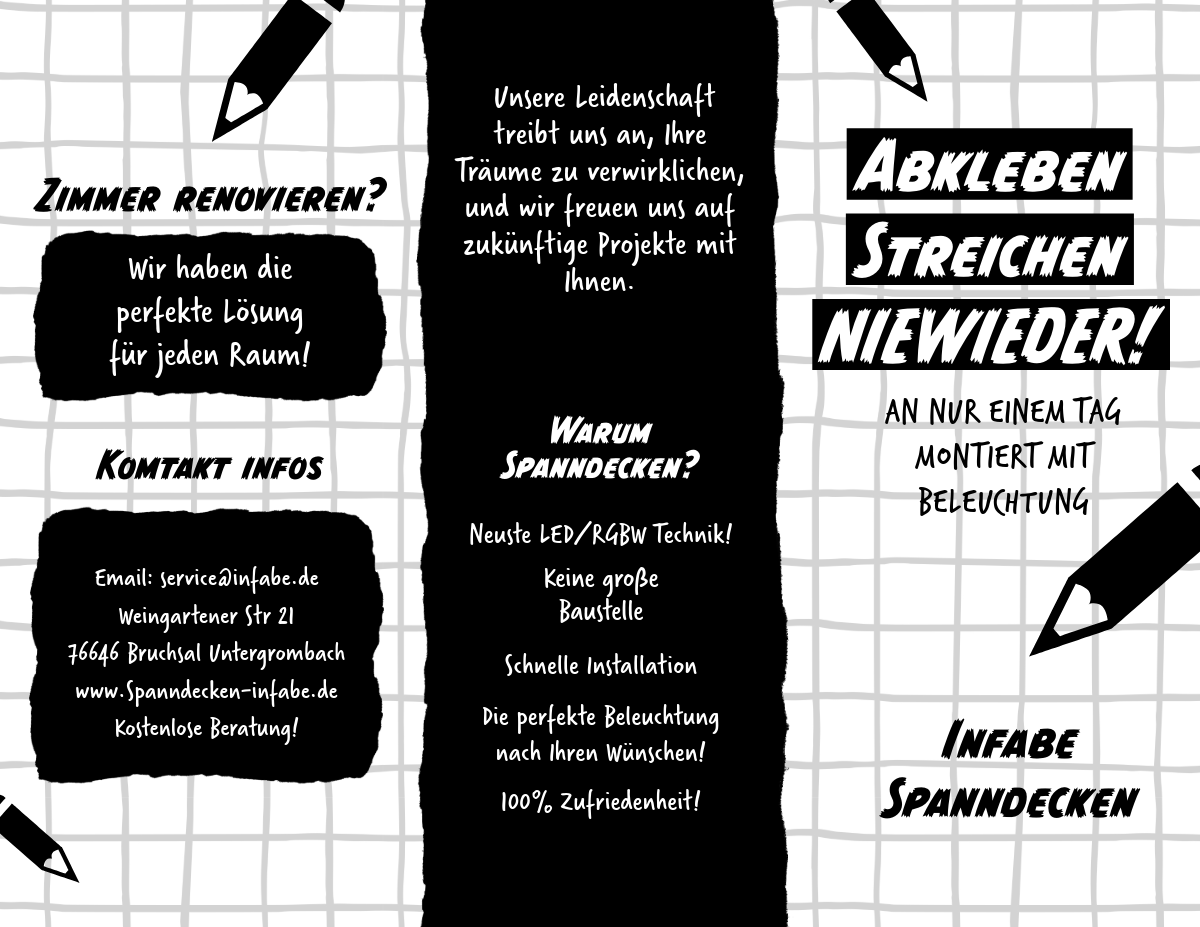 Zimmer renovieren?
Wir haben die
perfekte Lösung
für jeden Raum!
Komtakt infos
Email: service@infabe.de
Weingartener Str 21
76646 Bruchsal Untergrombach
www.Spanndecken-infabe.de
Kostenlose Beratung!
Unsere Leidenschaft
treibt uns an, Ihre
Träume zu verwirklichen,
und wir freuen uns auf
zukünftige Projekte mit
Ihnen.
Warum
Spanndecken?
Neuste LED/RGBW Technik!
Keine große
Baustelle
Schnelle Installation
Die perfekte Beleuchtung
nach Ihren Wünschen!
100% Zufriedenheit!
Abkleben
Streichen
NIEWIEDER!
AN NUR EINEM TAG
MONTIERT MIT
BELEUCHTUNG
Infabe
Spanndecken